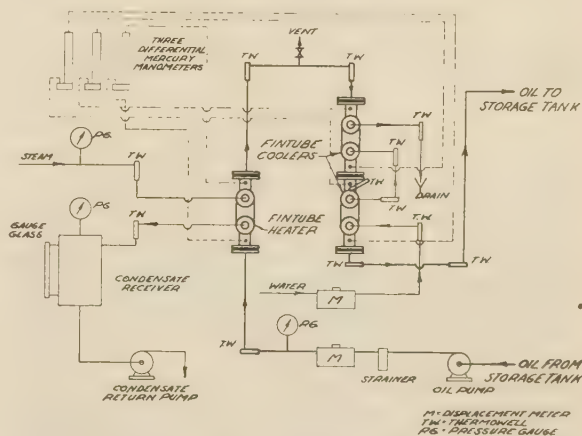 VENT
TW
TW
THREE
DIFFERENTIAL
MERCURY
MANOMETERS
OIL TO
STORAGE TANK
PG
TW
STEAM
FINTUBE
COOLERS
TW
TW
DRAIN
TW
PG
TW
GAUGE
GLASS
FINTUBE
HEATER
TW
CONDENSATE
RECEIVER
TW
TW
WATER
M
PG
TW
M
STRAINER
OIL PUMP
OIL FROM
STORAGE TANK
CONDENSATE
RETURN PUMP
M - DISPLACEMENT METER
TW - THERMOWELL
PG - PRESSURE GAUGE